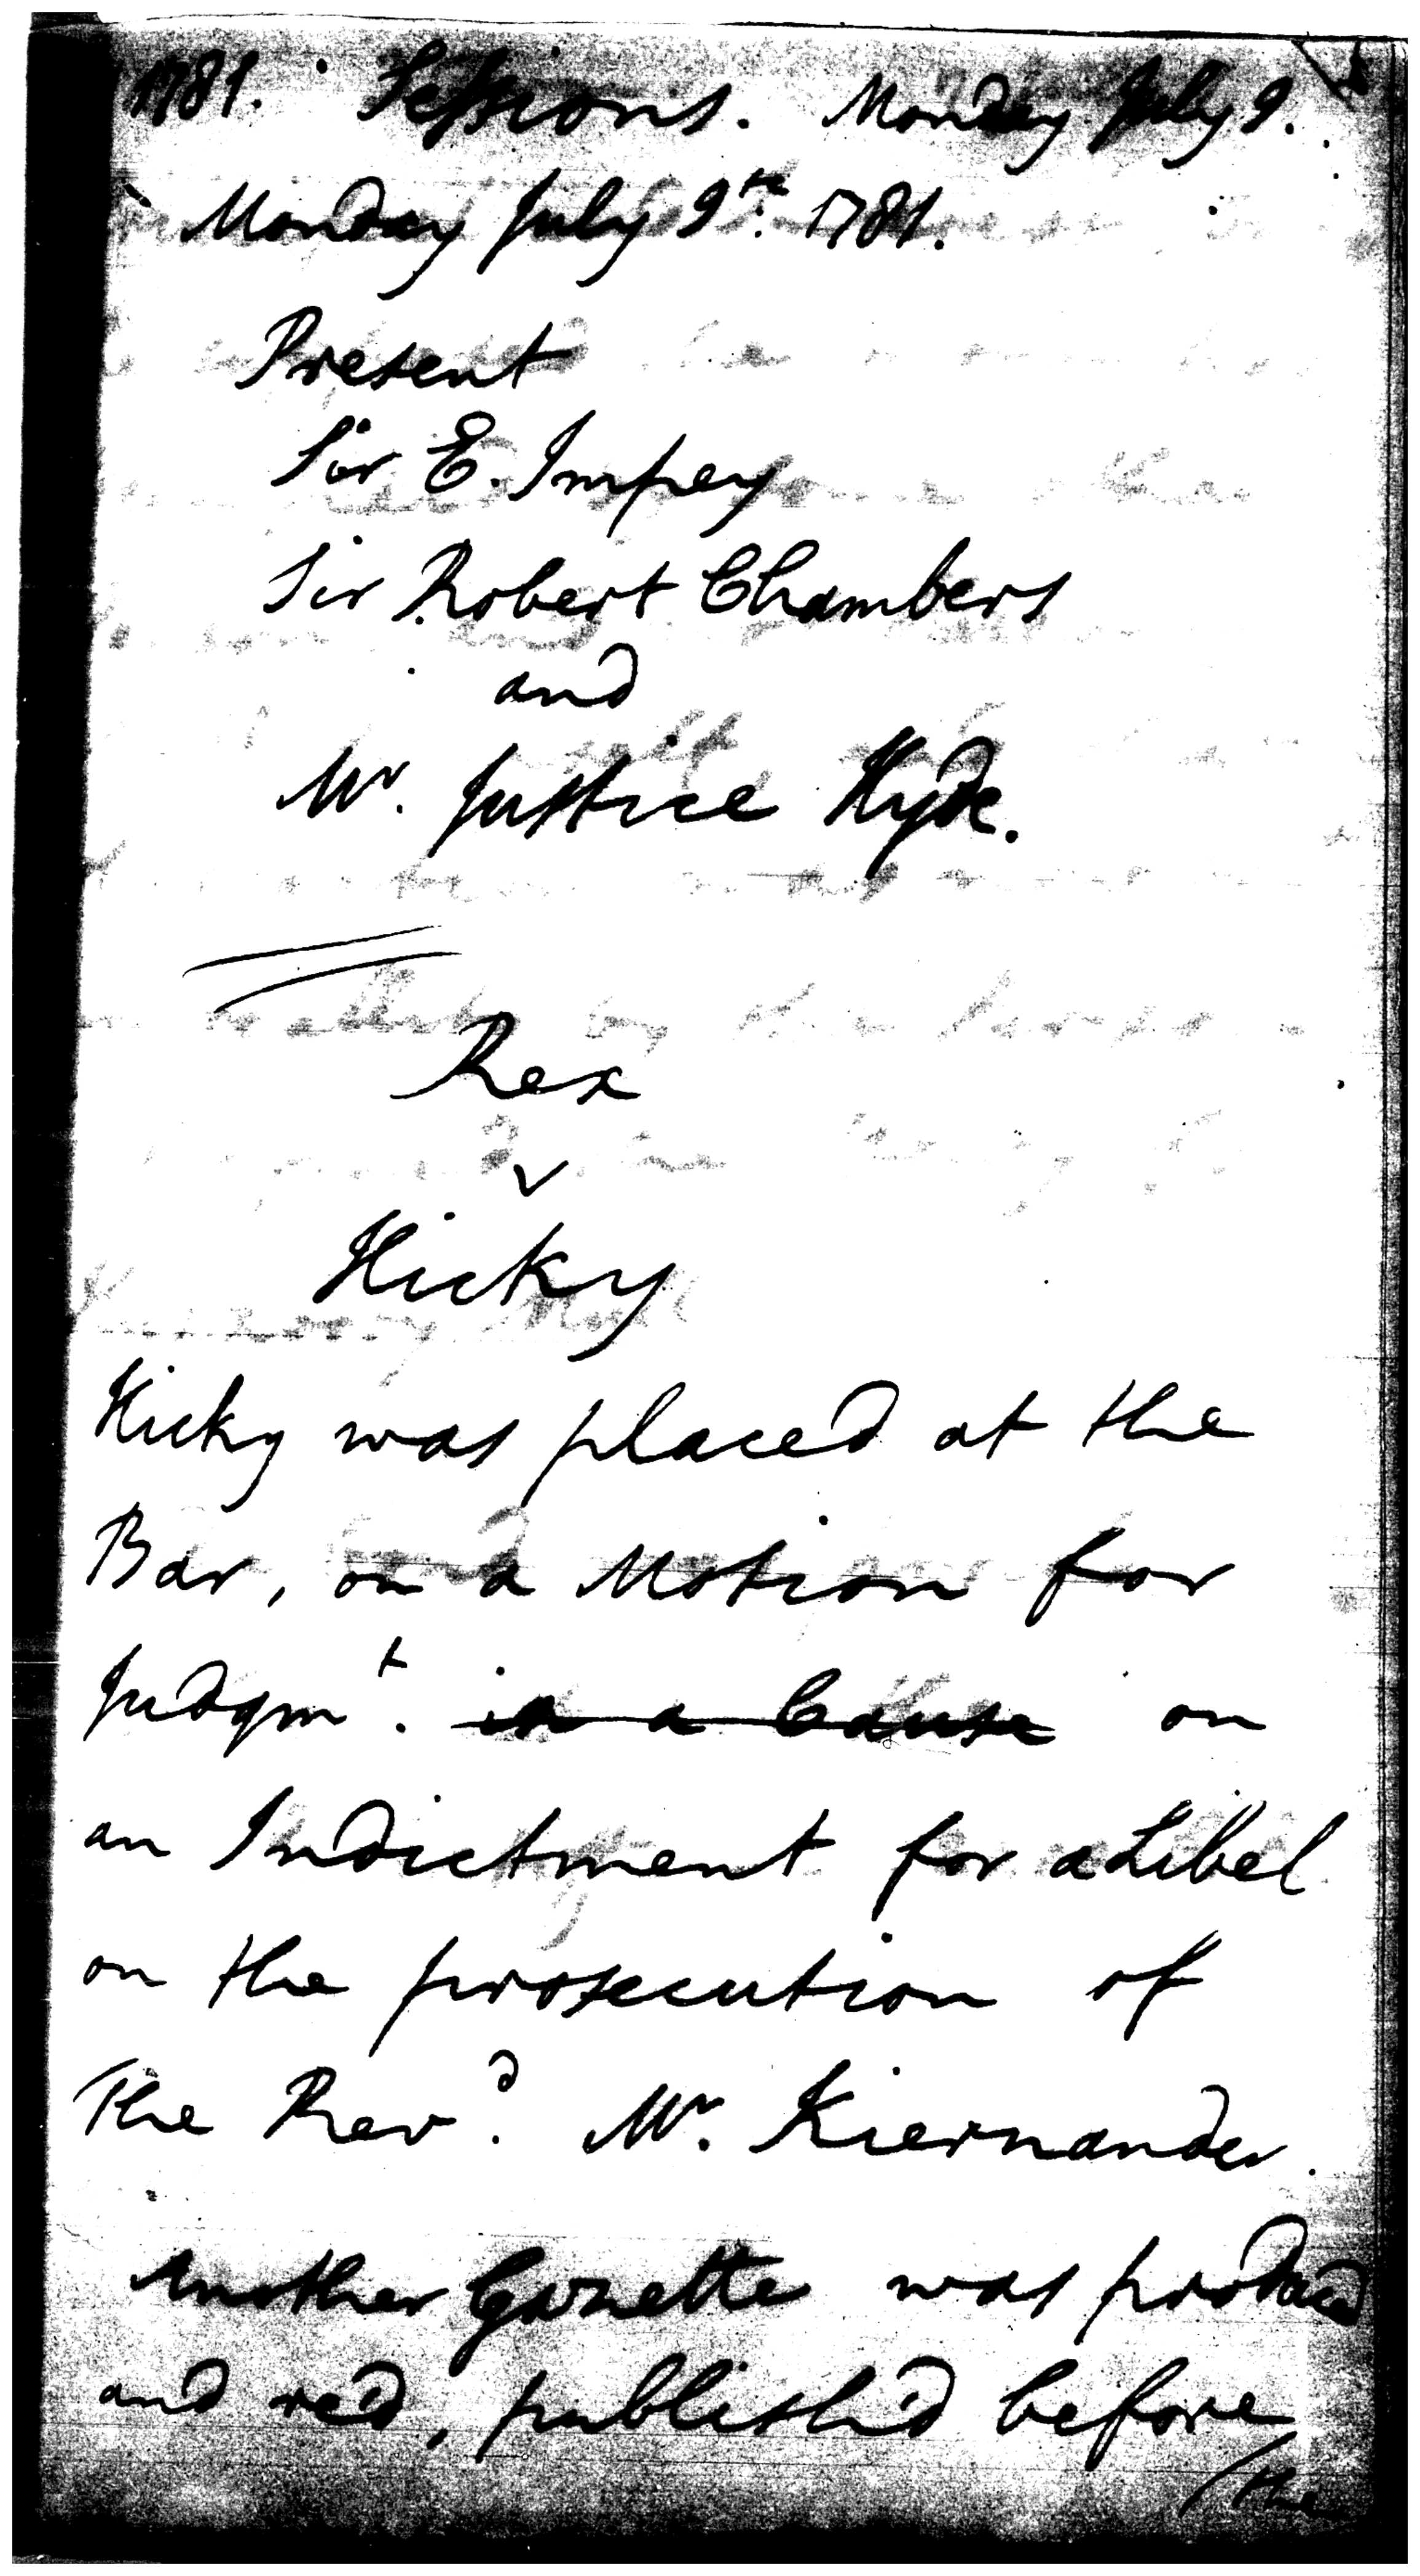 1781. Sessions. Monday July 9.
Monday July 9th. 1781.
Present
Sir E. Impey
Sir Robert Chambers
and
Mr. Justice Hyde.
Rex
v
Hicky
Hicky was placed at the
Bar, on a Motion for
Judgmt. in a Cause on
an Indictment for a Libel
on the prosecution of
The Revd. Mr. Kiernander.
Another Gazette was produced
and red, publish'd before
/the